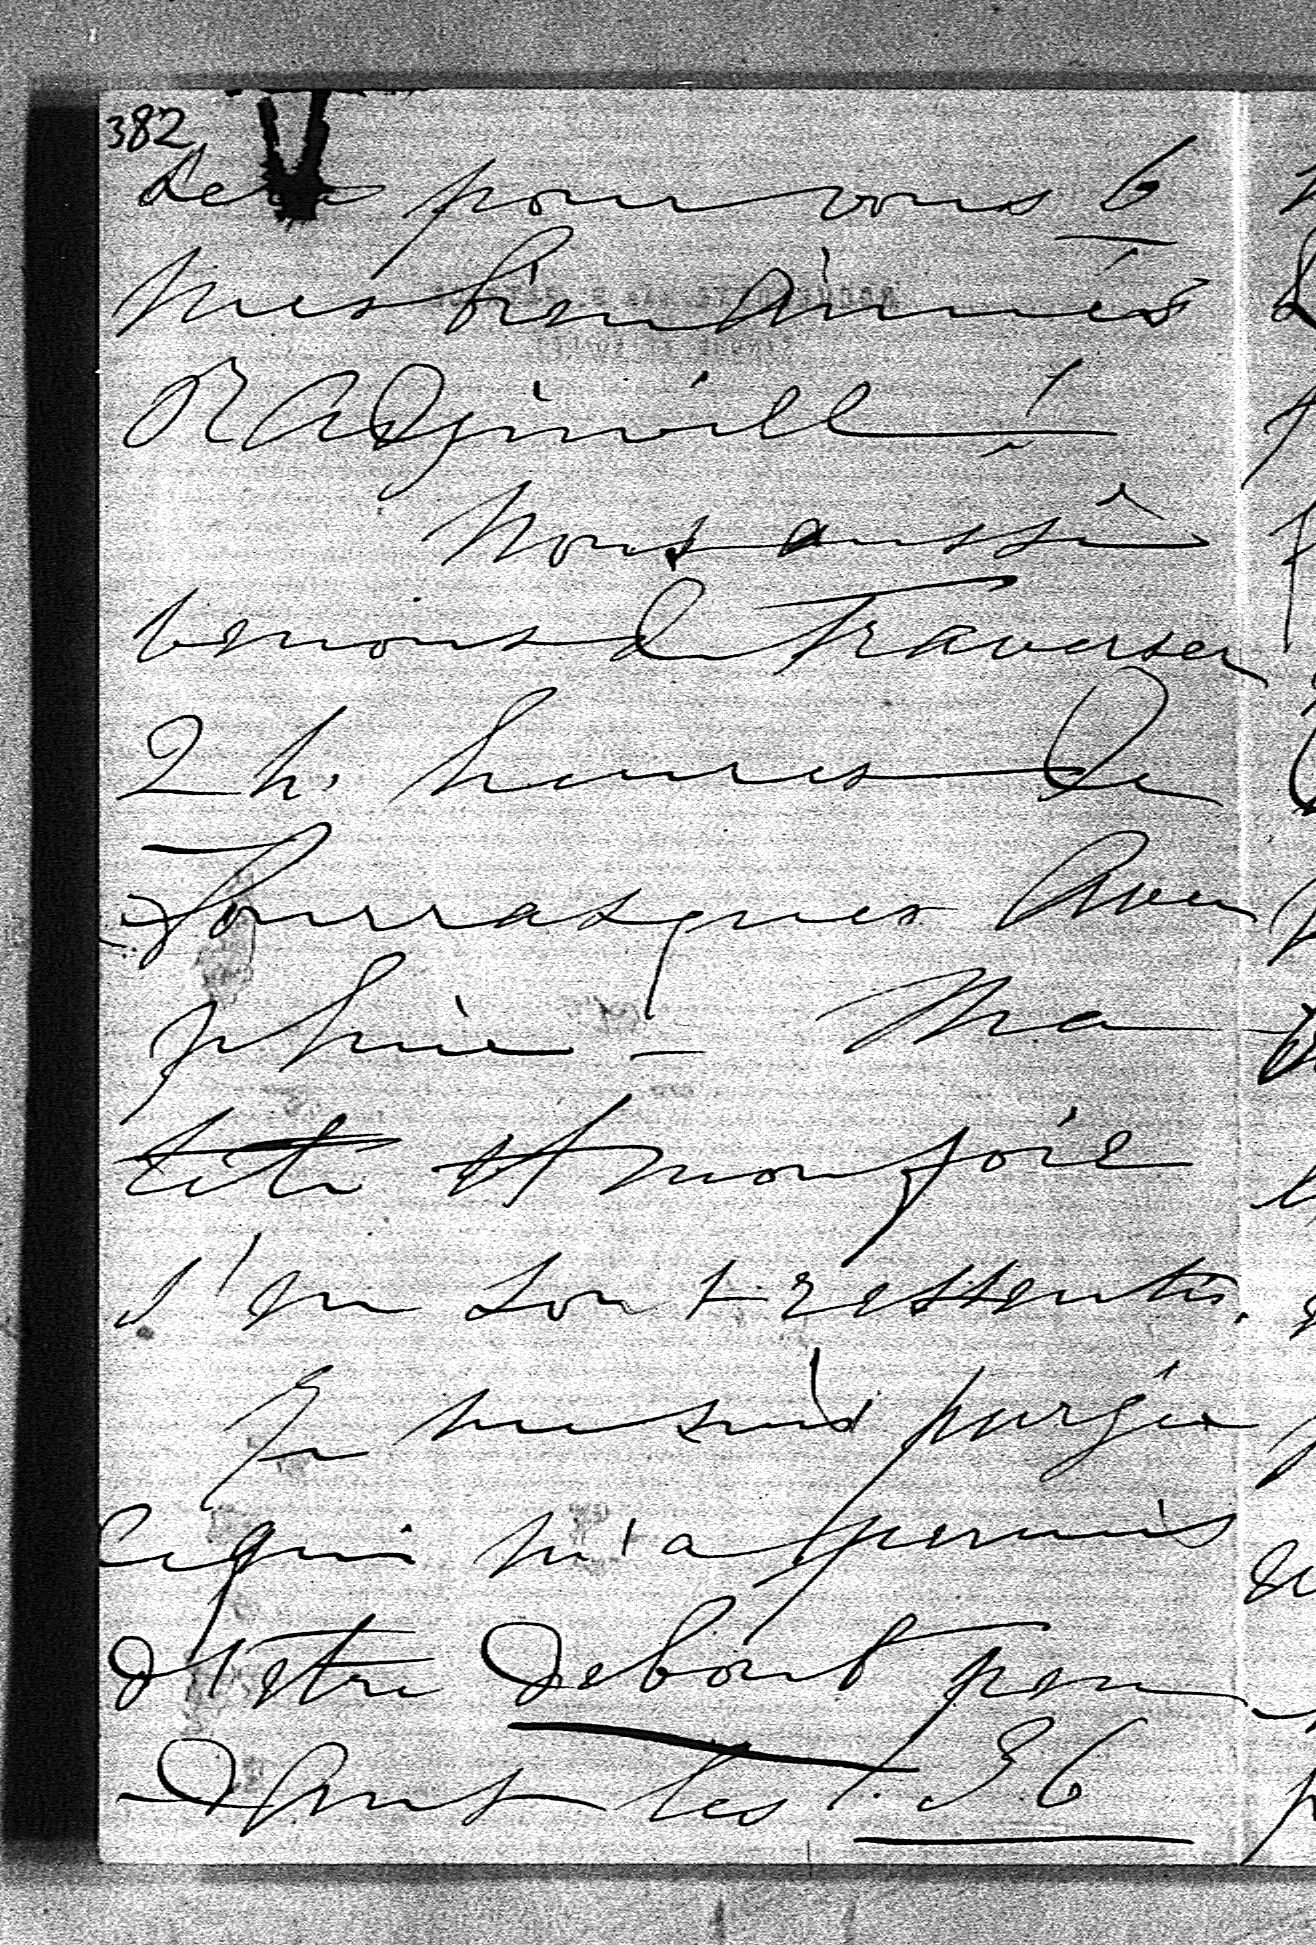 382
pour vous 6
mes bien Aimés
RADziwill !
Nous aussi
venons de Traverser
2 h. heures de
Bourrasques Avec
pluie – Ma
tête et mon foie
s'en sont ressentis.
Je me suis purgée
Ce qui m'a permis
d'être Debout pen
Dant les 36